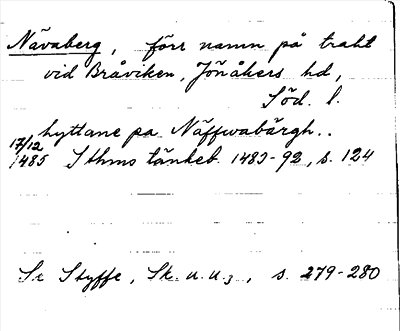 Nävaberg, förr namn på trakt
vid Bråviken, Jönåkers hd,
Söd. l.
hyttane pa Näffwabärgh..
17/12
1485 Sthms tänkeb. 1483-92, s. 124
Se Styffe, Sk. u. u. 3, s. 279-280